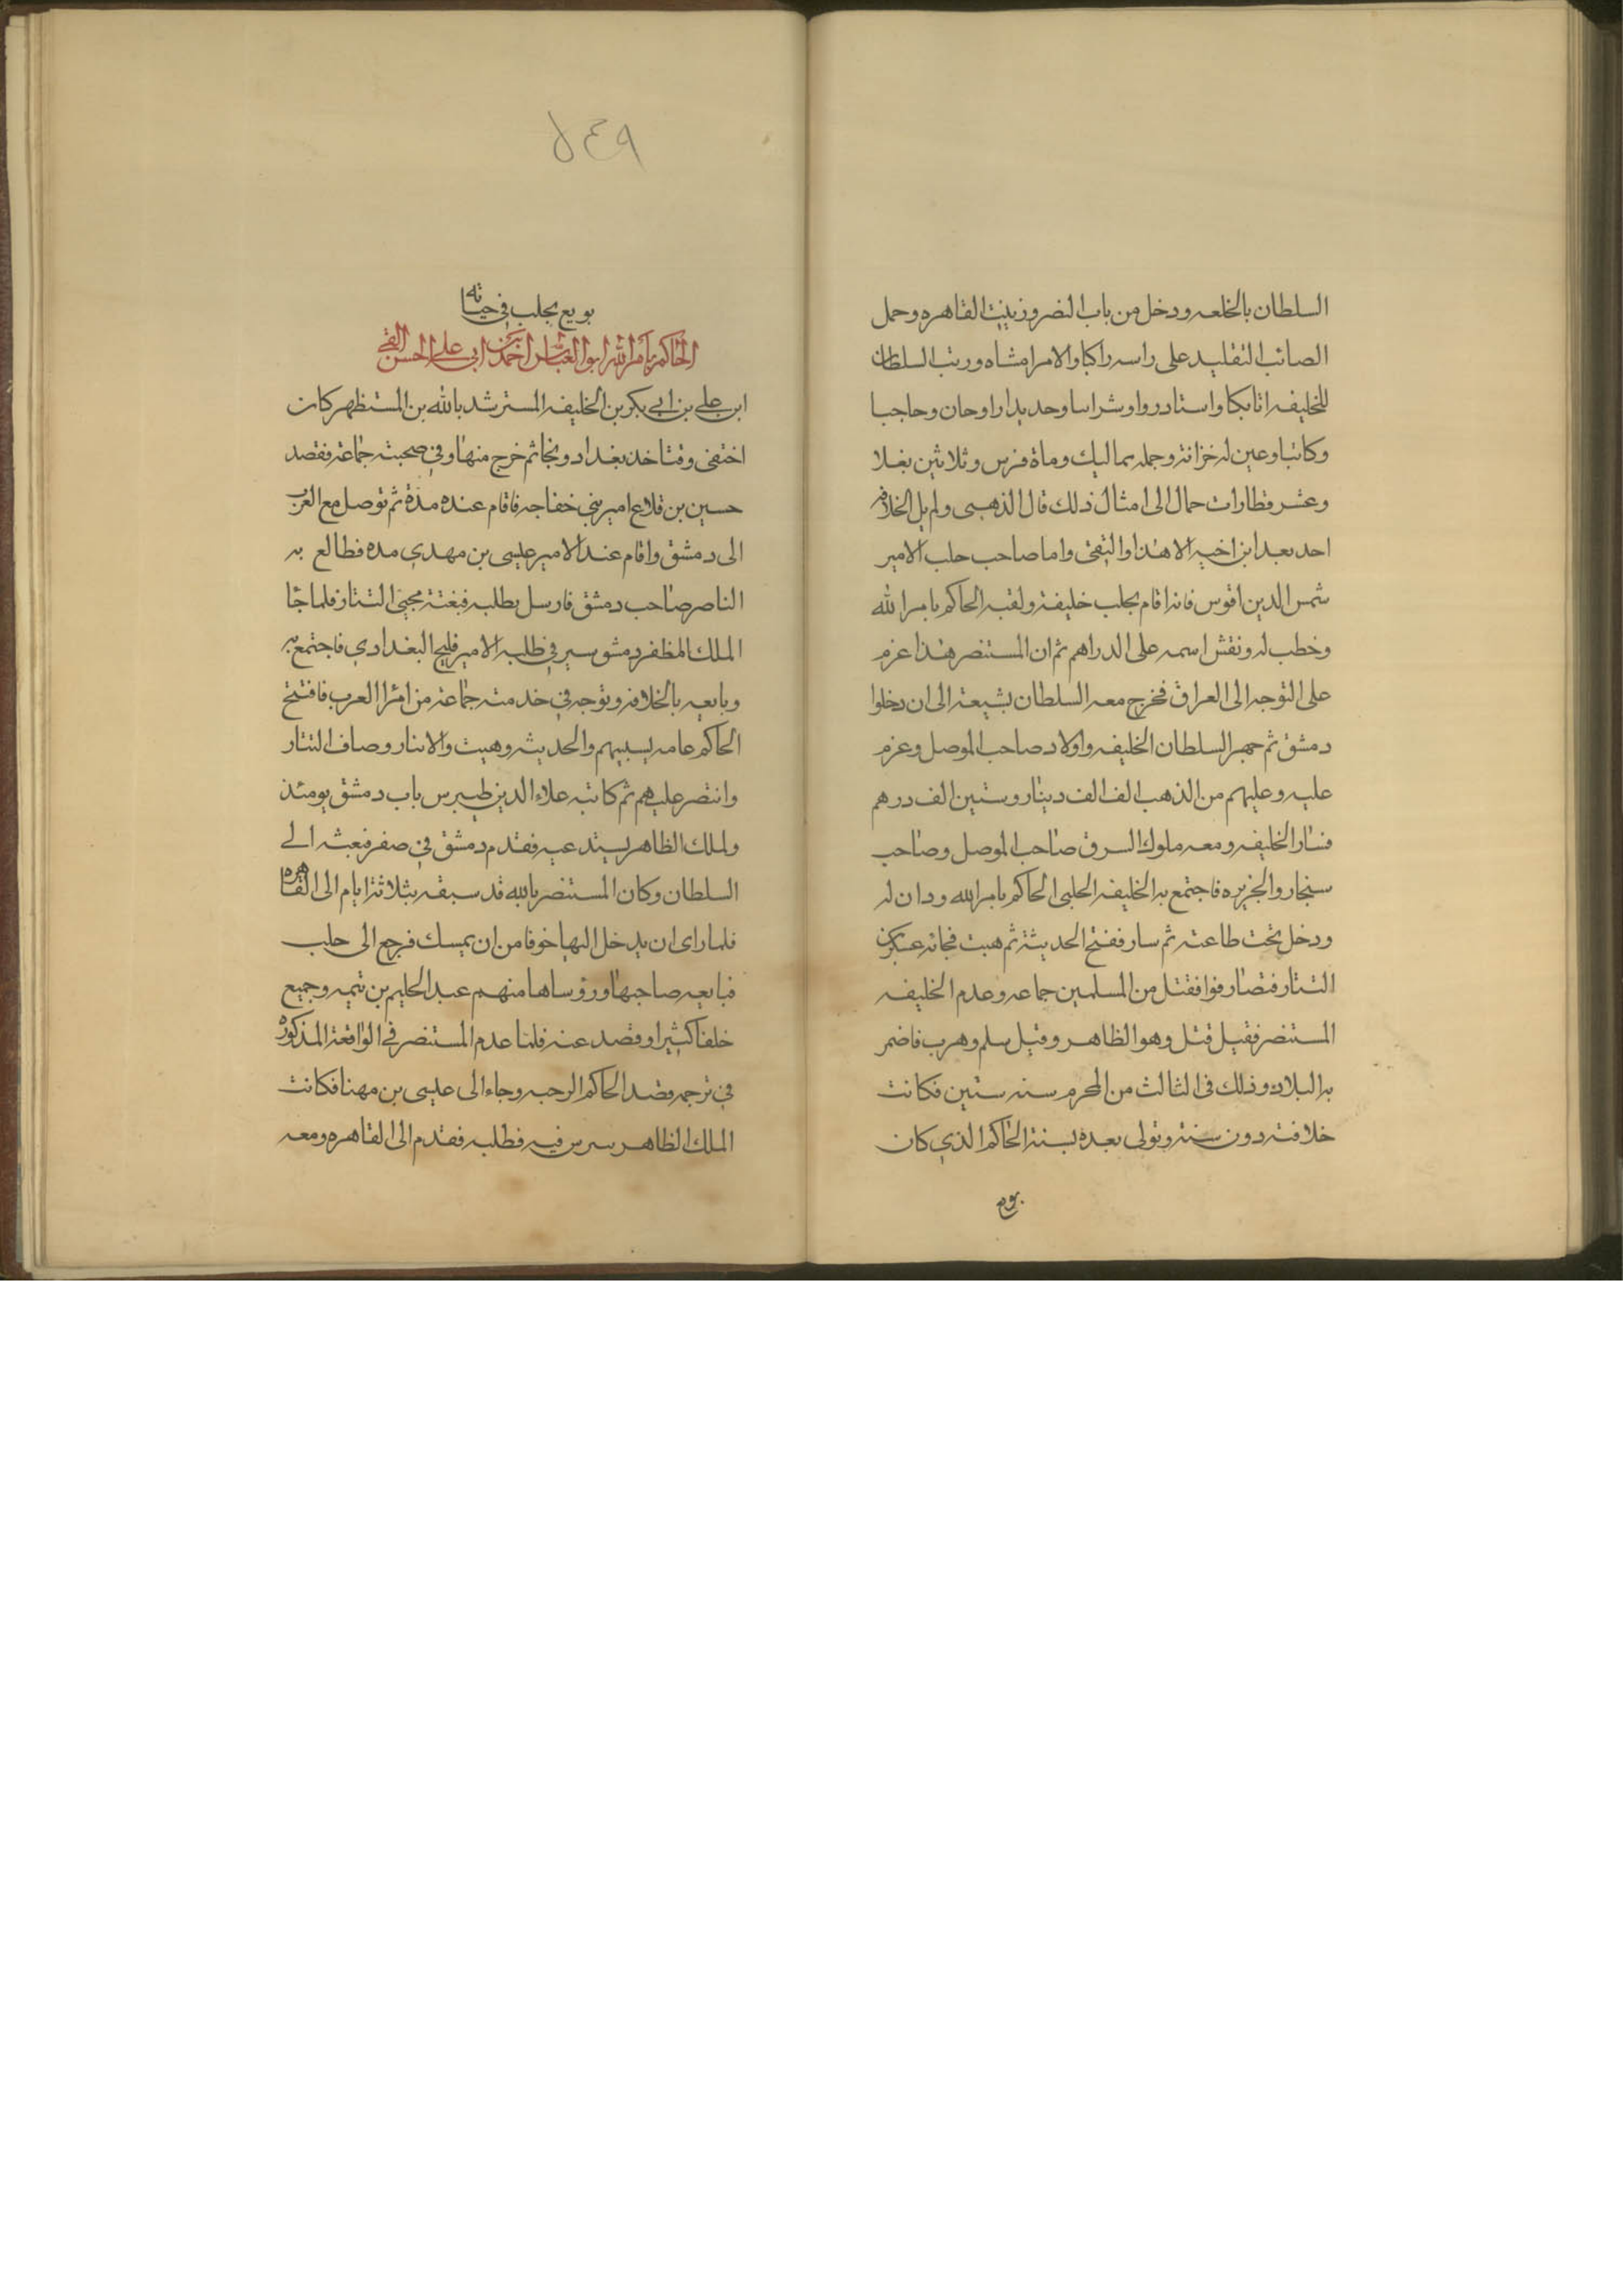 السلطان بالخلعه ودخل من باب النصر وزينت القاهره وحمل
الصاحب التقليد على راسه راكبا والامرا مشاه ورتب السلطان
للخليفه اتابكا واستادروا وشرابيا وحديدارا وحان وحاجبا
وكاتبا وعين له خزانة وجمله مماليك وماة فرس وثلاثين بغلا
وعشر قطارات جمال الى امثال ذلك قال الذهبى ولم يل الخلافه
احد بعد ابن اخيه الا هذا والتقى واما صاحب حلب الامير
شمس الدين اقوس فانه اقام بحلب خليفة ولقبه الحاكم بامر الله
وخطب له ونقش اسمه على الدراهم ثم ان المستنصر هذا عزم
على التوجه الى العراق فخرج معه السلطان يشيعه الى ان دخلوا
دمشق ثم جهز السلطان الخليفه واولاد صاحب الموصل وعزم
عليه وعليهم من الذهب الف الف دينار وستين الف درهم
فسار الخليفه ومعه ملوك السرق صاحب الموصل وصاحب
سنجار والجزيره فاجتمع به الخليفه الحلبى الحاكم بامر الله ودان له
ودخل تحت طاعته ثم سار ففتح الحديثة ثم هيت فجانه عسكر من
التتار فتصارفوا فقتل من المسلمين جماعه وعدم الخليفه
المستنصر فقيل قتل وهو الظاهر وقيل سلم وهرب فاضمر
به البلاد وذلك فى الثالث من المحرم سنه ستين فكانت
خلافته دون سنة وتولى بعده بسنة الحاكم الذي كان
بويع
٥٤٩
بويع بحلب في حياته
الحاكم بامر الله ابو العباس احمد بن ابى على الحسن القبى
ابن علي بن ابي بكر بن الخليفه المسترشد بالله بن المستظهر كان
اختفى وقت اخذ بغداد ونجا ثم خرج منها وفي صحبته جماعة فقصد
حسين بن قلاع امير بني خفاجه فاقام عنده مدة ثم توصل مع العرب
الى دمشق واقام عند الامير عيسى بن مهدي مده فطالع به
الناصر صاحب دمشق فارسل يطلبه فبغتة مجيئ التتار فلما جا
الملك المظفر دمشق سير في طلبه الامير قليج البغدادي فاجتمع به
وبايعه بالخلافه وتوجه في خدمته جماعة من امرا العرب فافتتح
الحاكم عامه بسببهم والحديثه وهيت والانبار وصاف التتار
وانتصر عليهم ثم كاتبه علاء الدين طيبرس باب دمشق يومئذ
ولملك الظاهر يستدعيه فقدم دمشق في صفر فبعثه الى
السلطان وكان المستنصر بالله قد سبقه بثلاثة ايام الى القاهره
فلما راى ان يدخل اليها خوفا من ان يمسك فرجع الى حلب
فبايعه صاحبها ورؤساها منهم عبد الحليم بن تيميه وجميع
خلقا كثيرا وقصد عنه فلما عدم المستنصر في الواقعة المذكوره
في ترجمه قصد الحاكم الرحبه وجاء الى عيسى بن مهنا فكانت
الملك الظاهر سرس فيه فطلبه فقدم الى القاهره ومعه